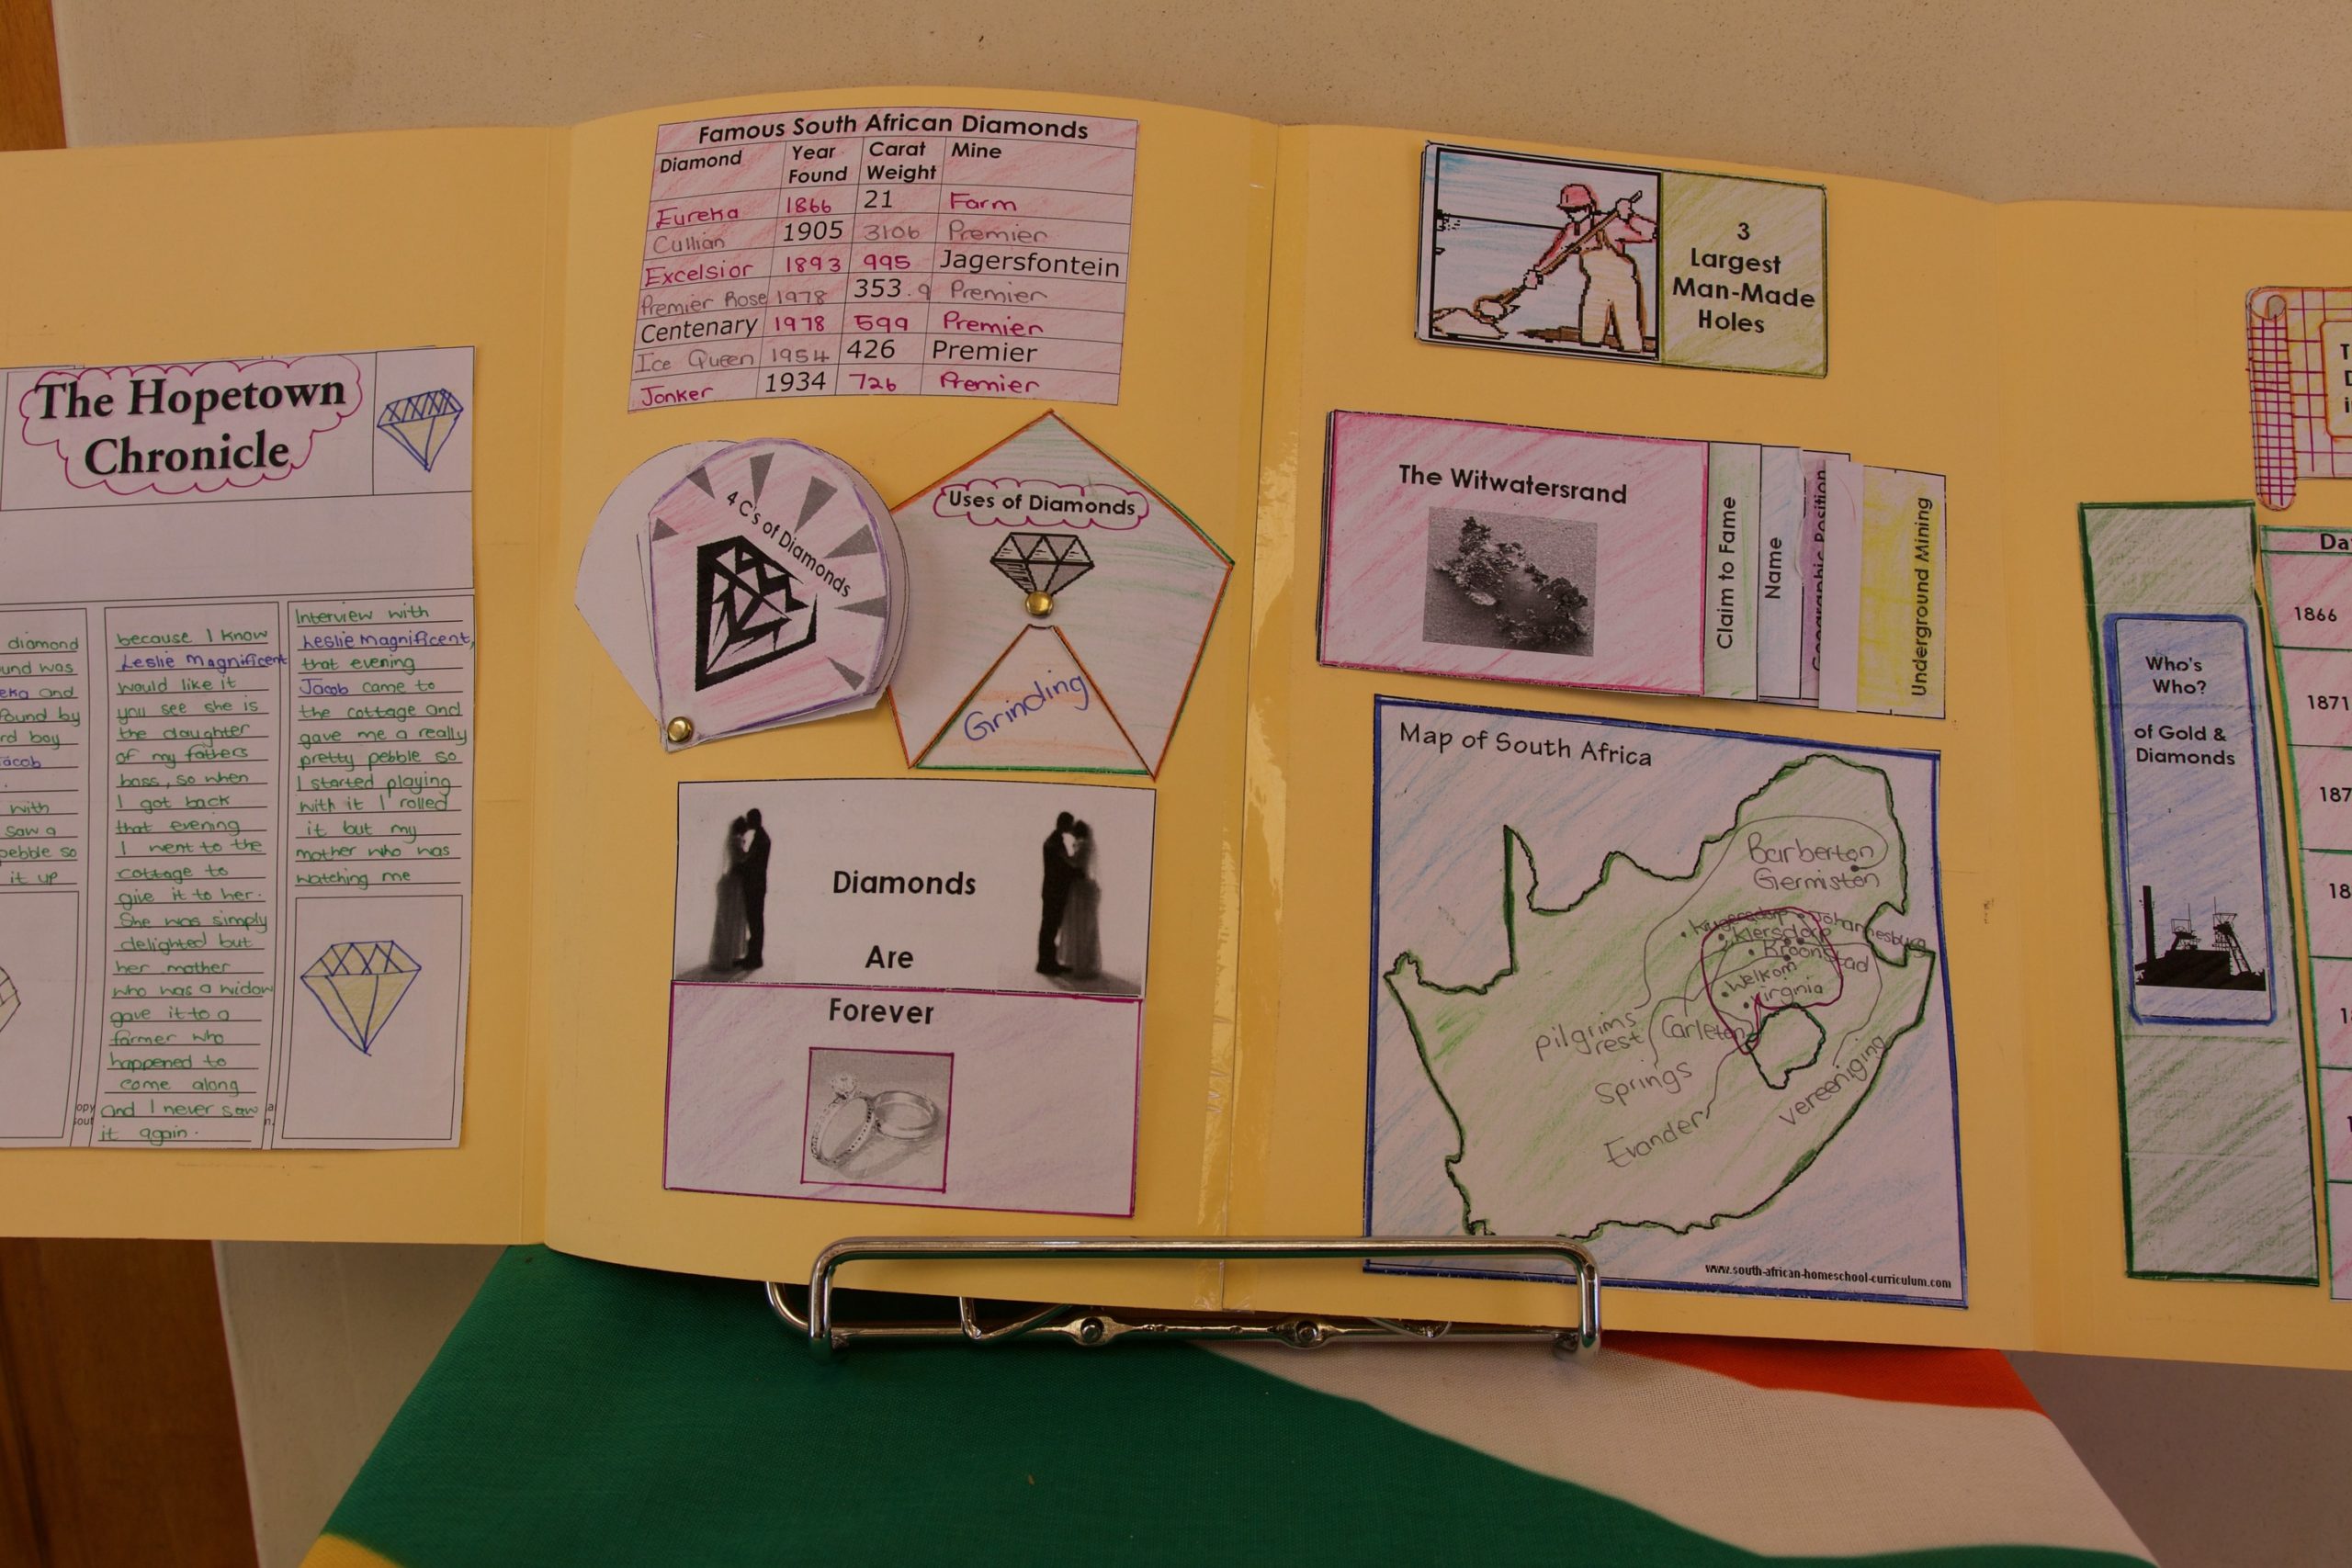 The Hopetown
Chronicle
diamond
und was
eka and
found by
rd boy
acob
with
saw a
pebble so
it up
because I know
Leslie Magnificent
would like it
you see she is
the daughter
of my fathers
boss, so when
I got back
that evening
I went to the
cottage to
give it to her.
She was simply
delighted but
her mother
who was a widow
gave it to a
farmer who
happened to
come along
and I never saw
it again.
Interview with
Leslie Magnificent,
that evening
Jacob came to
the cottage and
gave me a really
pretty pebble so
I started playing
with it I rolled
it but my
mother who was
watching me
Famous South African Diamonds
Diamond Year Found Carat Weight Mine
Eureka 1866 21 Farm
Cullian 1905 3106 Premier
Excelsior 1893 995 Jagersfontein
Premier Rose 1978 353.9 Premier
Centenary 1978 599 Premier
Ice Queen 1954 426 Premier
Jonker 1934 726 Premier
4 C's of Diamonds
Uses of Diamonds
Grinding
Diamonds
Are
Forever
3
Largest
Man-Made
Holes
The Witwatersrand
Claim to Fame
Name
Geographic Position
Underground Mining
Map of South Africa
Barberton
Germiston
Krugersdorp
Johannesburg
Klersdorp
Kroonstad
Welkom
Virginia
Pilgrims
rest
Carleton
Springs
Evander
Vereeniging
www.south-african-homeschool-curriculum.com
Who's
Who?
of Gold &
Diamonds
Da
1866
1871
187
18